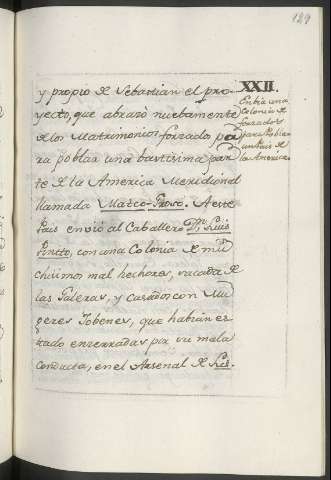 129
y propio de Sebastian el pro-
yecto, que abrazò nuebamente
de los Matrimonios forzados pa-
ra poblar una bastisima par-
te de la America Meridional
llamada Mateo-Groso. A este
Pais envió al Caballero Dn. Luis
Pintto, con una Colonia de mu
chisimos mal hechores, sacada de
las Galeras, y casados con Mu
geres Jobenes, que habian es
tado enserradas por su mala
conducta, en el Arsenal de Lis-
XXII.
Enbia una
Colonia de
forzados
para Poblar
un Pais de
la America